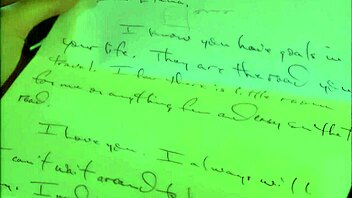 I know you have goals in
your life. They are the road you
travel. I fear there is little room
for me or anything fun and easy on that
road.
I love you. I always will
I can't wait around to